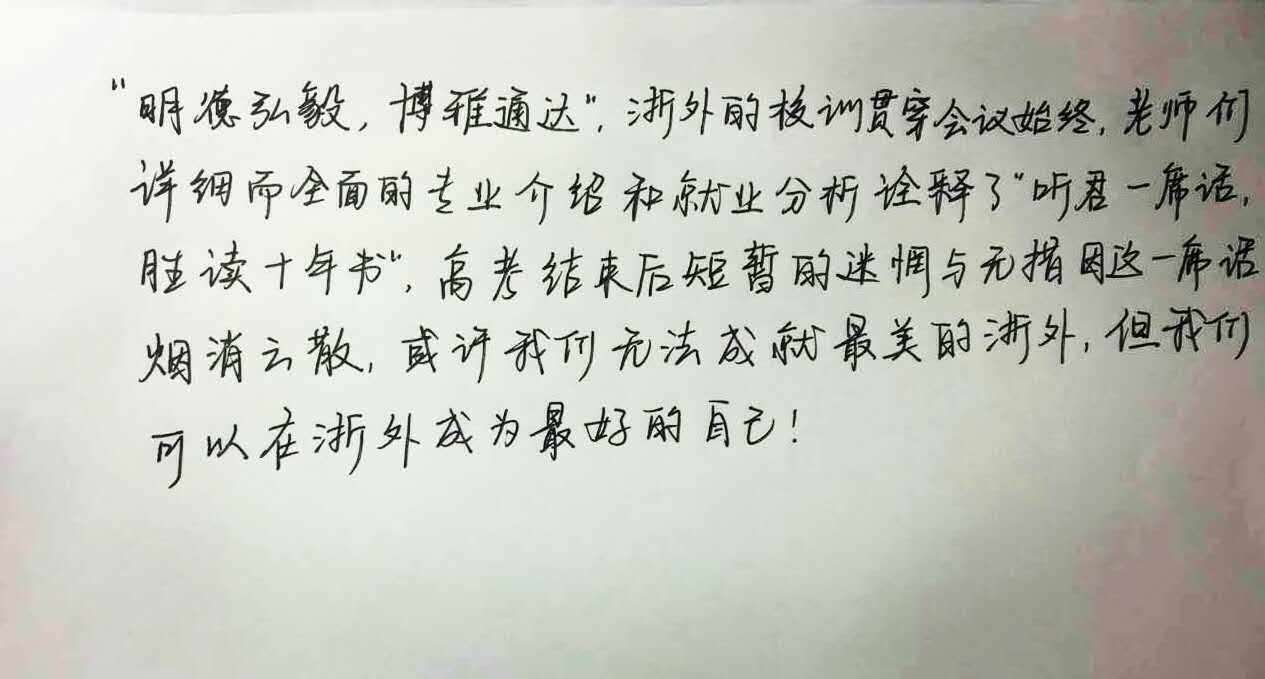 “明德弘毅，博雅通达”，浙外的校训贯穿会议始终，老师们
详细而全面的专业介绍和就业分析诠释了“听君一席话，
胜读十年书”，高考结束后短暂的迷惘与无措因这一席话
烟消云散，或许我们无法成就最美的浙外，但我们
可以在浙外成为最好的自己！